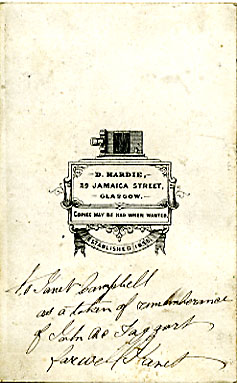 D. HARDIE,
29 JAMAICA STREET,
GLASGOW.
COPIES MAY BE HAD WHEN WANTED.
ESTABLISHED
to Janet Campbell
as a token of rememberance
of John Mc Taggart
farewell Janet